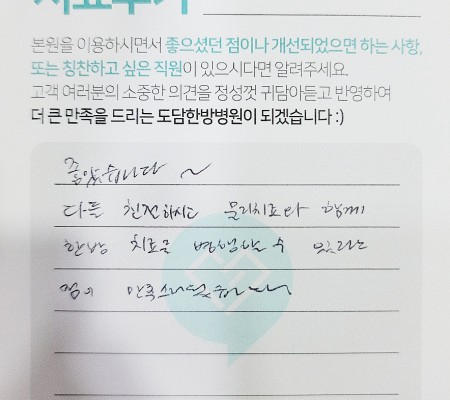 치료후기
본원을 이용하시면서 좋으셨던 점이나 개선되었으면 하는 사항,
또는 칭찬하고 싶은 직원이 있으시다면 알려주세요.
고객 여러분의 소중한 의견을 정성껏 귀담아듣고 반영하여
더 큰 만족을 드리는 도담한방병원이 되겠습니다 :)
좋았습니다 ~
다들 친절하시고 물리치료와 함께
한방 치료를 병행할 수 있다는
점이 만족스러웠습니다